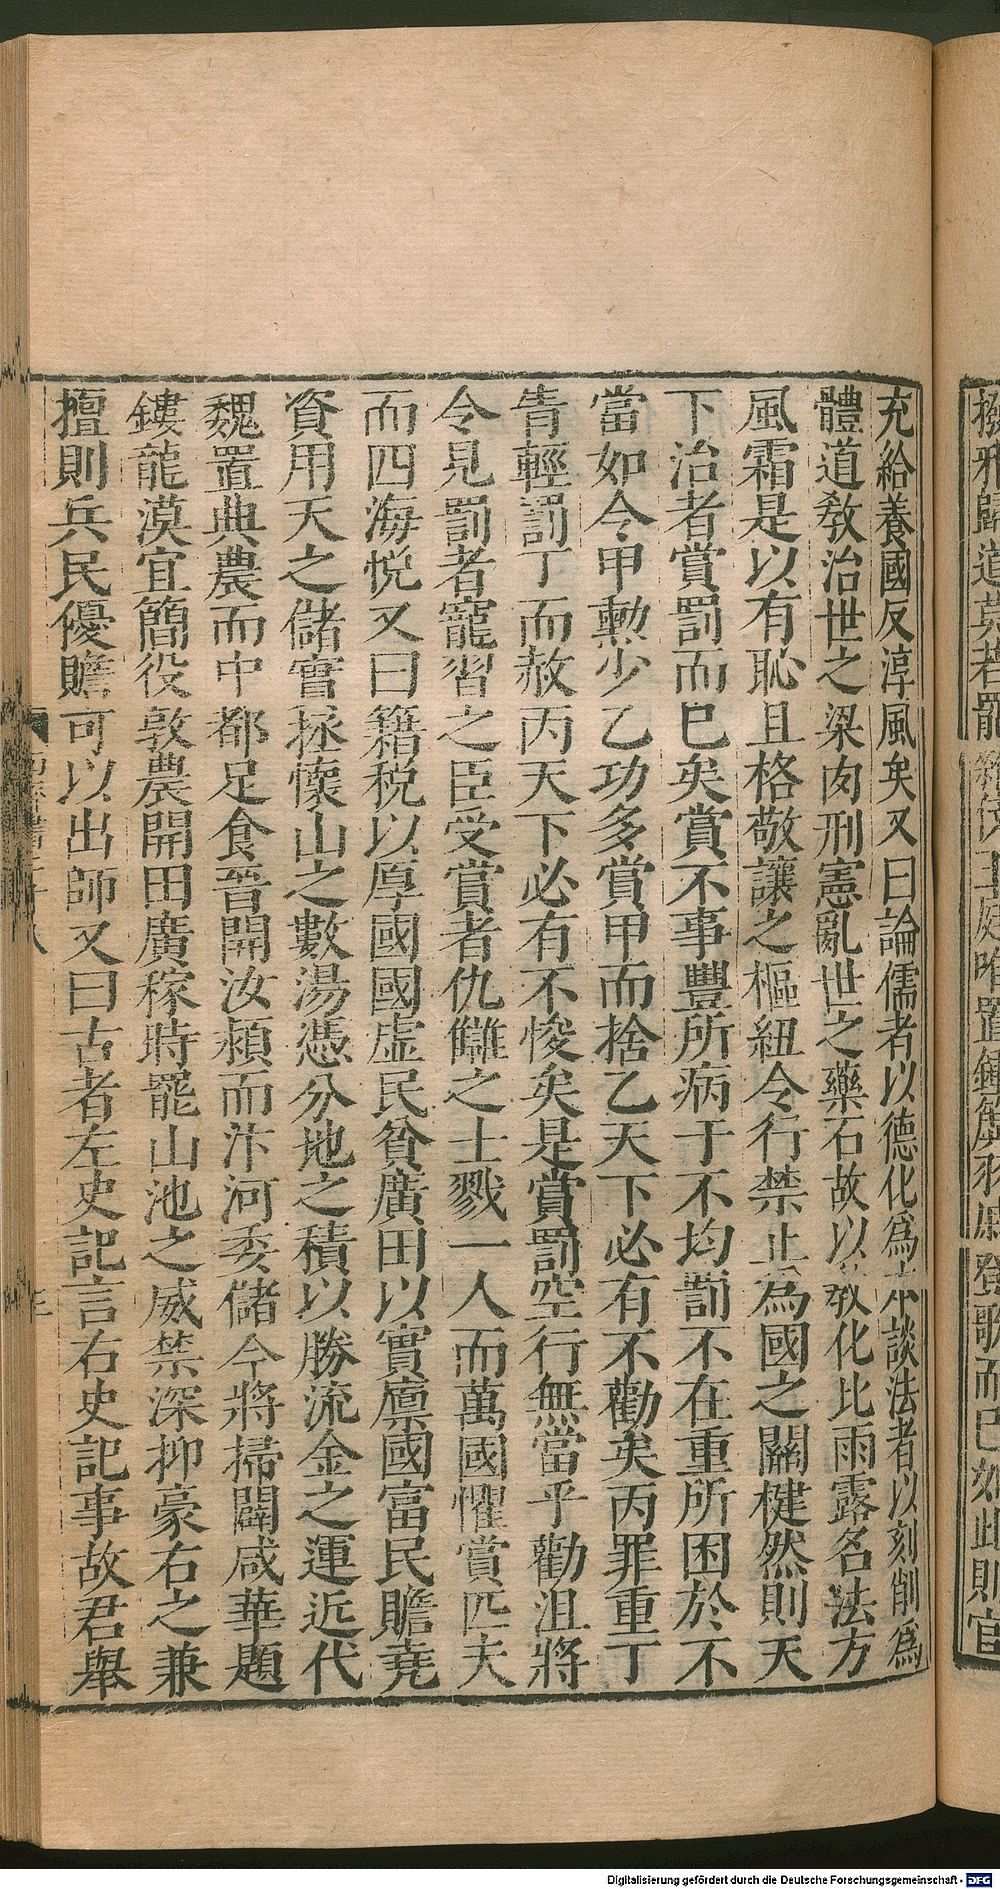 撥邪歸道莫若罷雜伎王庭唯置鍾簴羽戚登歌而已如此則官
充給養國反淳風矣又曰論儒者以德化爲本談法者以刻削爲
體道敎治世之粱肉刑憲亂世之藥石故以敎化比雨露名法方
風霜是以有恥且格敬讓之樞紐令行禁止爲國之關楗然則天
下治者賞罰而已矣賞不事豐所病于不均罰不在重所困於不
當如令甲勲少乙功多賞甲而捨乙天下必有不勸矣丙罪重丁
眚輕罰丁而赦丙天下必有不悛矣是賞罰空行無當乎勸沮將
令見罰者寵習之臣受賞者仇讎之士戮一人而萬國懼賞匹夫
而四海悅又曰籍稅以厚國國虛民貧廣田以實廩國富民贍堯
資用天之儲實拯懷山之數湯憑分地之積以勝流金之運近代
魏置典農而中都足食晉開汝潁而汴河委儲今將掃闢咸華題
鏤龍漠宜簡役敦農開田廣稼時罷山池之威禁深抑豪右之兼
擅則兵民優贍可以出師又曰古者左史記言右史記事故君舉
Digitalisierung gefördert durch die Deutsche Forschungsgemeinschaft - DFG